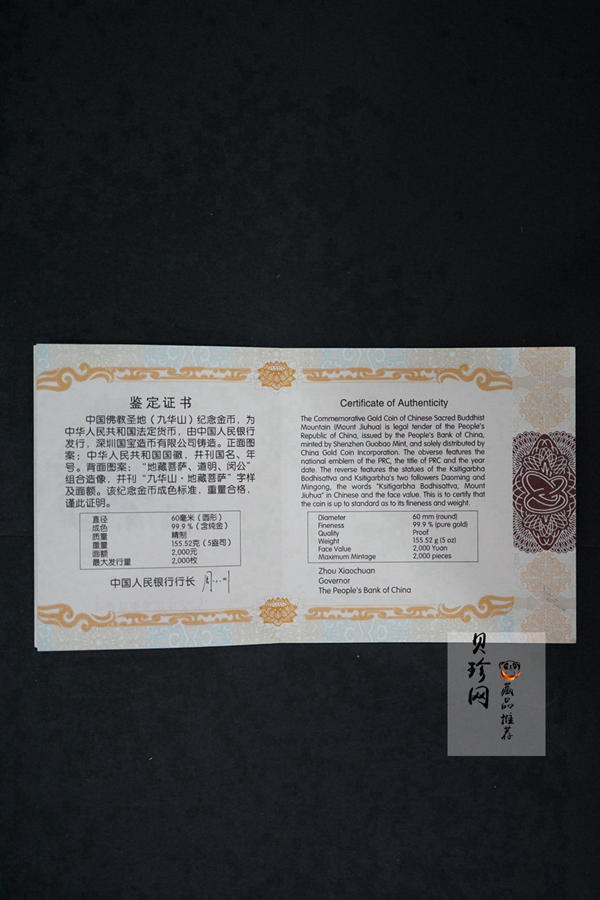 鉴定证书
中国佛教圣地（九华山）纪念金币，为
中华人民共和国法定货币，由中国人民银行
发行，深圳国宝造币有限公司铸造。正面图
案：中华人民共和国国徽，并刊国名、年
号。背面图案：“地藏菩萨、道明、闵公”
组合造像，并刊“九华山·地藏菩萨”字样
及面额。该纪念金币成色标准，重量合格，
谨此证明。
直径 60毫米（圆形）
成色 99.9％（含纯金）
质量 精制
重量 155.52克（5盎司）
面额 2,000元
最大发行量 2,000枚
中国人民银行行长
Certificate of Authenticity
The Commemorative Gold Coin of Chinese Sacred Buddhist
Mountain (Mount Jiuhua) is legal tender of the People's
Republic of China, issued by the People's Bank of China,
minted by Shenzhen Guobao Mint, and solely distributed by
China Gold Coin Incorporation. The obverse features the
national emblem of the PRC, the title of PRC and the year
date. The reverse features the statues of the Ksitigarbha
Bodhisattva and Ksitigarbha's two followers Daoming and
Mingong, the words "Ksitigarbha Bodhisattva, Mount
Jiuhua" in Chinese and the face value. This is to certify that
the coin is up to standard as to its fineness and weight.
Diameter 60 mm (round)
Fineness 99.9 % (pure gold)
Quality Proof
Weight 155.52 g (5 oz)
Face Value 2,000 Yuan
Maximum Mintage 2,000 pieces
Zhou Xiaochuan
Governor
The People's Bank of China
贝珍网
藏品推荐